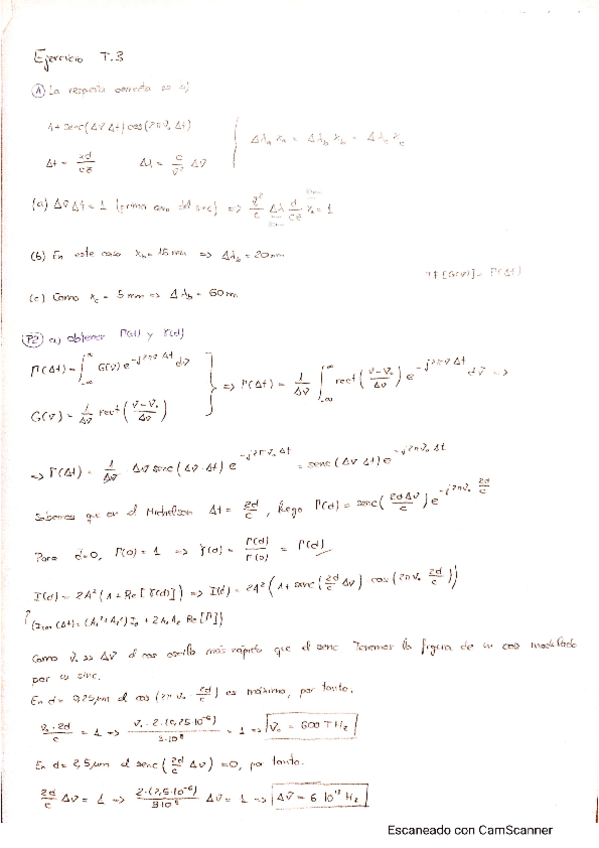 Ejercicio T.3
① La respuesta correcta es a)
1 + senc(Δν Δt) cos(2πν₀ Δt)
Δt = xd/cz    Δλ = c/ν² Δν
Δλₐ xₐ = Δλ_b x_b = Δλ_c x_c
(a) Δν Δt = 1 (primer cero del senc) =>
(b) En este caso x_b = 15 mm => Δλ_b = 20 nm
(c) Como x_c = 5 mm => Δλ_b = 60 nm
TF[G(ν)] = Γ(Δt)
P2 a) obtener Γ(d) y γ(d)
Γ(Δt) = ∫_{-∞}^{∞} G(ν) e^{-j2πν Δt} dν
G(ν) = 1/Δν rect((ν-ν₀)/Δν)
=> Γ(Δt) = 1/Δν ∫_{-∞}^{∞} rect((ν-ν₀)/Δν) e^{-j2πν Δt} dν =>
=> Γ(Δt) = 1/Δν Δν senc(Δν·Δt) e^{-j2πν₀Δt} = senc(Δν Δt) e^{-j2πν₀ Δt}
Sabemos que en el Michelson Δt = 2d/c, luego Γ(d) = senc(2dΔν/c) e^{-j2πν₀ 2d/c}
Para d=0, Γ(0) = 1 => γ(d) = Γ(d)/Γ(0) = Γ(d)
I(d) = 2A²(1 + Re[γ(d)]) => I(d) = 2A²(1 + senc(2d/c Δν) cos(2πν₀ 2d/c))
Como ν₀ >> Δν el cos oscila más rápido que el senc Tenemos la figura de un cos modulado
por un sinc.
En d = 0,25μm el cos(2πν₀ · 2d/c) es máximo, por tanto:
ν₀·2d/c = 1 => ν₀·2·(0,25·10⁻⁶)/3·10⁸ = 1 => ν₀ = 600 THz
En d = 2,5μm el senc(2d/c Δν) = 0, por tanto:
2d/c Δν = 1 => 2·(2,5·10⁻⁶)/3·10⁸ Δν = 1 => Δν = 6·10¹³ Hz
Escaneado con CamScanner